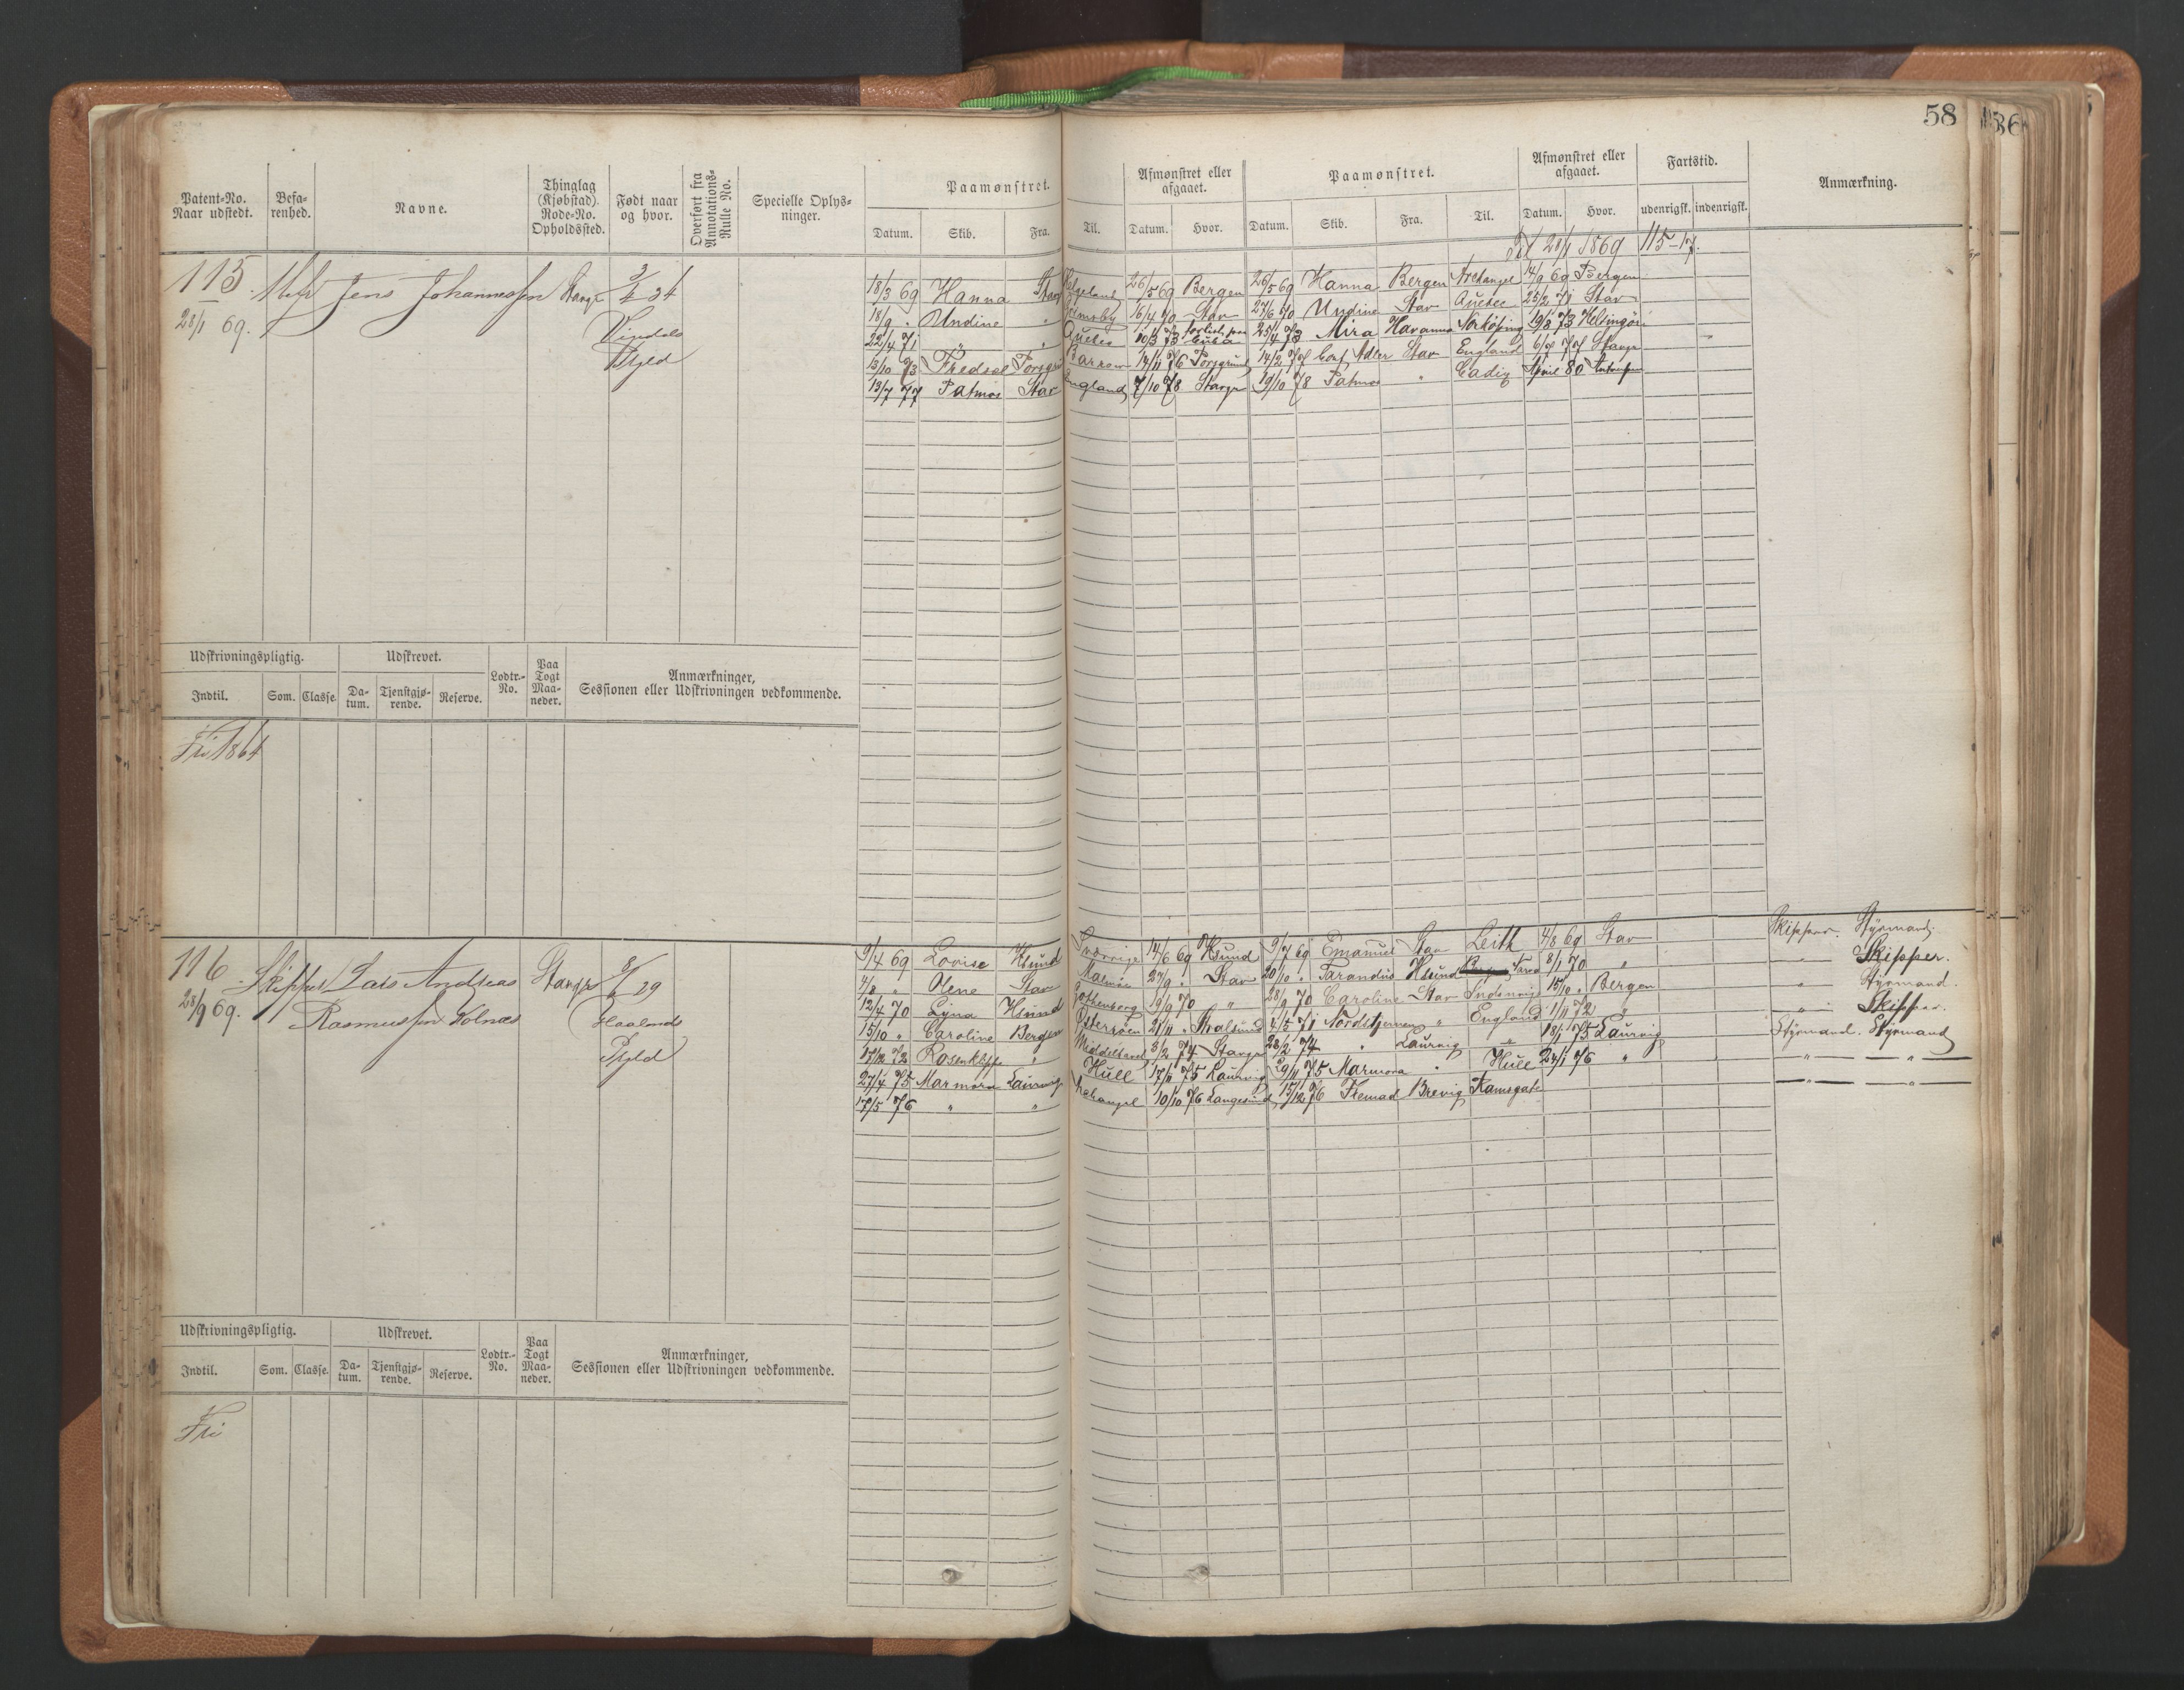 58
36
Patent-No. Naar udstedt.
Befa-renhed.
Navne.
Thinglag (Kjøbstad). Rode-No. Opholdssted.
Født naar og hvor.
Overført fra Annotations-Rulle No.
Specielle Oplys-ninger.
Paamønstret.
Datum. Skib. Fra. Til.
Afmønstret eller afgaaet.
Datum. Hvor.
Paamønstret.
Datum. Skib. Fra. Til.
Afmønstret eller afgaaet.
Datum. Hvor.
Fartstid.
udenrigsk. indenrigsk.
Anmærkning.
Til 28/1 1869 115-17.
115. Jens Johannessen Stavgr 3/4 34
28/1 69.
Vindals
Ptgld
18/3 69 Hanna Stav Helgeland 26/5 69 Bergen 26/5 69 Hanna Bergen Archangel 14/9 69 Bergen
18/9 " Undine " Grimsby 16/4 70 Stav 27/6 70 Undine Stav Quebec 25/2 71 Stav
22/4 71 " " Quebec 10/3 73 Cuba 25/4 73 Mira Havanna Norköping 19/8 73 Helsingör
13/10 73 Fredsæl Porsgr Barrow 14/11 76 Porsgrund 14/2 77 Cort Adler Stav England 6/7 77 Stavgr
13/7 77 Patmos Stav England 7/10 78 Stavgr 19/10 78 Patmos " Cadiz April 80 Antwerpen
Udskrivningspligtig. Udskrevet. Lodtr.-No. Paa Togt Maa-neder. Anmærkninger, Sessionen eller Udskrivningen vedkommende.
Indtil. Som. Classe. Da-tum. Tjenstgjø-rende. Reserve.
Fri 1864
116. Skipper Lars Andreas Stavgr 8/6 29
28/9 69. Rasmussen Tolnæs
Haalands
Ptgld
9/4 69 Lovise Hsund Sverrige 14/6 69 Hsund 9/7 69 Emanuel Stav Leith 4/8 69 Stav Skipper. Styrmand.
4/8 " Olene Stav Malmöe 27/9 " Stav 20/10 " Tarandus Hsund 8/1 70 " " Skipper.
12/4 70 Lyna Hsund Gothenborg 19/9 70 " 28/9 70 Caroline Stav 15/10 " Bergen " Styrmand.
15/10 " Caroline Bergen Österröen 21/11 " Stralsund 4/5 71 Nordstjernen " England 1/11 72 " " Skipper.
17/12 72 Rosenklippe " Middelhavet 3/2 74 Stavgr 28/2 74 " Laurvig " 18/1 75 Laurvig Styrmand. Styrmand
27/4 75 Marmora Laurvig Hull 17/11 75 Laurvig 29/11 75 Marmora " Hull 24/1 76 " " "
17/5 76 " " Archangel 10/10 76 Langesund 15/12 76 Fremad Brevig Ramsgate " "
Udskrivningspligtig. Udskrevet. Lodtr.-No. Paa Togt Maa-neder. Anmærkninger, Sessionen eller Udskrivningen vedkommende.
Indtil. Som. Classe. Da-tum. Tjenstgjø-rende. Reserve.
Fri